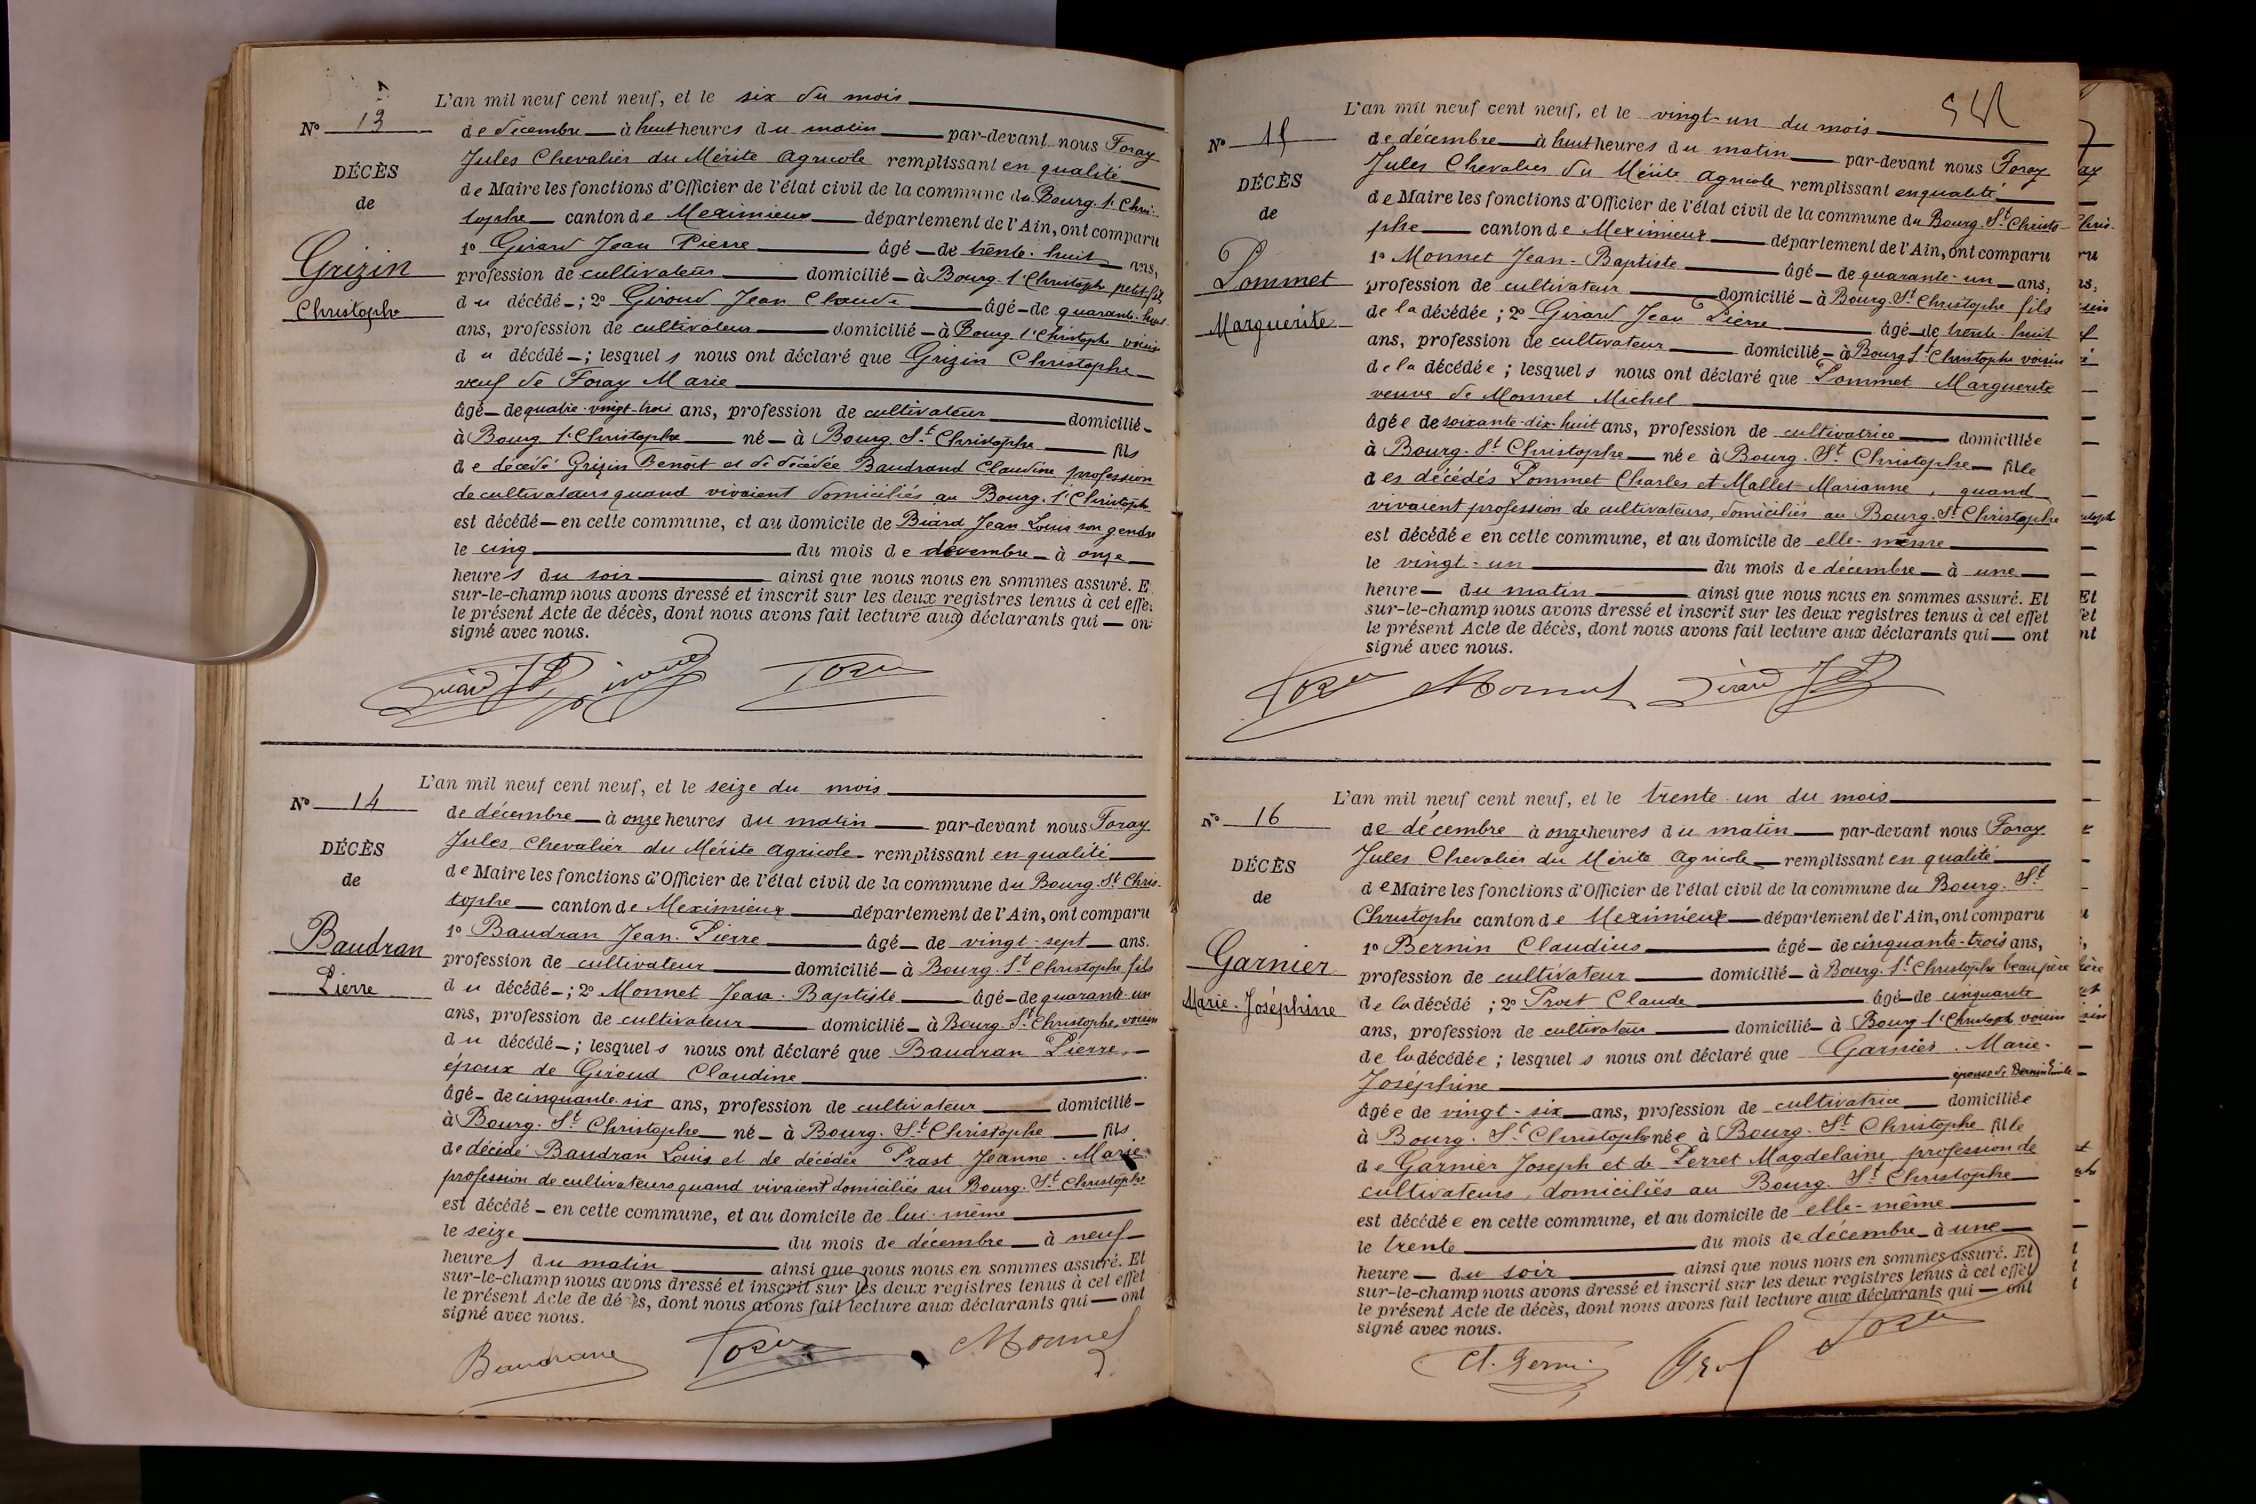 L'an mil neuf cent neuf, et le six du mois
N° 13
de décembre à huit heures du matin par-devant nous Foray
Jules Chevalier du Mérite Agricole remplissant en qualité
DÉCÈS
de Maire les fonctions d'Officier de l'état civil de la commune du Bourg. St Chris-
de
tophe canton de Meximieux département de l'Ain, ont comparu
1° Girard Jean Pierre âgé de trente-huit ans,
Grizin
profession de cultivateur domicilié à Bourg St Christophe petit-fils
Christophe
du décédé ; 2° Giroud Jean Claude âgé de quarante-huit
ans, profession de cultivateur domicilié à Bourg St Christophe voisin
du décédé ; lesquels nous ont déclaré que Grizin Christophe
veuf de Foray Marie
âgé de quatre-vingt-trois ans, profession de cultivateur domicilié
à Bourg St Christophe né à Bourg St Christophe fils
de décédé Grizin Benoît et de décédée Baudrand Claudine profession
de cultivateurs quand vivaient domiciliés au Bourg. St Christophe
est décédé en cette commune, et au domicile de Biard Jean Louis son gendre
le cinq du mois de décembre à onze
heures du soir ainsi que nous nous en sommes assuré. E
sur-le-champ nous avons dressé et inscrit sur les deux registres tenus à cet effet
le présent Acte de décès, dont nous avons fait lecture aux déclarants qui ont
signé avec nous.
Girard JP Giroud Foray
L'an mil neuf cent neuf, et le seize du mois
N° 14
de décembre à onze heures du matin par-devant nous Foray
Jules Chevalier du Mérite Agricole remplissant en qualité
DÉCÈS
de Maire les fonctions d'Officier de l'état civil de la commune du Bourg. St Chris-
de
tophe canton de Meximieux département de l'Ain, ont comparu
1° Baudran Jean-Pierre âgé de vingt-sept ans.
Baudran
profession de cultivateur domicilié à Bourg. St Christophe fils
Pierre
du décédé ; 2° Monnet Jean-Baptiste âgé de quarante-un
ans, profession de cultivateur domicilié à Bourg. St Christophe, voisin
du décédé ; lesquels nous ont déclaré que Baudran Pierre,
époux de Giroud Claudine
âgé de cinquante-six ans, profession de cultivateur domicilié
à Bourg. St Christophe né à Bourg. St Christophe fils
de décédé Baudran Louis et de décédée Prast Jeanne-Marie
profession de cultivateurs quand vivaient domiciliés au Bourg. St Christophe
est décédé en cette commune, et au domicile de lui-même
le seize du mois de décembre à neuf
heures du matin ainsi que nous nous en sommes assuré. Et
sur-le-champ nous avons dressé et inscrit sur les deux registres tenus à cet effet
le présent Acte de décès, dont nous avons fait lecture aux déclarants qui ont
signé avec nous.
Baudrand Foray Monnet
L'an mil neuf cent neuf, et le vingt-un du mois
N° 15
de décembre à huit heures du matin par-devant nous Foray
Jules Chevalier du Mérite Agricole remplissant en qualité
DÉCÈS
de Maire les fonctions d'Officier de l'état civil de la commune du Bourg. St Christo-
de
phe canton de Meximieux département de l'Ain, ont comparu
1° Monnet Jean-Baptiste âgé de quarante-un ans,
Pommet
profession de cultivateur domicilié à Bourg. St Christophe fils
Marguerite
de la décédée ; 2° Girard Jean Pierre âgé de trente-huit
ans, profession de cultivateur domicilié à Bourg St Christophe voisin
de la décédée ; lesquels nous ont déclaré que Pommet Marguerite
veuve de Monnet Michel
âgée de soixante-dix-huit ans, profession de cultivatrice domiciliée
à Bourg. St Christophe née à Bourg. St Christophe fille
des décédés Pommet Charles et Mallet Marianne, quand
vivaient profession de cultivateurs, domiciliés au Bourg. St Christophe
est décédée en cette commune, et au domicile de elle-même
le vingt-un du mois de décembre à une
heure du matin ainsi que nous nous en sommes assuré. Et
sur-le-champ nous avons dressé et inscrit sur les deux registres tenus à cet effet
le présent Acte de décès, dont nous avons fait lecture aux déclarants qui ont
signé avec nous.
Foray Monnet Girard JP
L'an mil neuf cent neuf, et le trente-un du mois
N° 16
de décembre à onze heures du matin par-devant nous Foray
Jules Chevalier du Mérite Agricole remplissant en qualité
DÉCÈS
de Maire les fonctions d'Officier de l'état civil de la commune du Bourg. St
de
Christophe canton de Meximieux département de l'Ain, ont comparu
1° Bernin Claudius âgé de cinquante-trois ans,
Garnier
profession de cultivateur domicilié à Bourg. St Christophe beau père
Marie-Joséphine
de la décédé ; 2° Prost Claude âgé de cinquante
ans, profession de cultivateur domicilié à Bourg St Christoph voisin
de la décédée ; lesquels nous ont déclaré que Garnier Marie-
Joséphine épouse de Bernin Emile
âgée de vingt-six ans, profession de cultivatrice domiciliée
à Bourg. St Christophe née à Bourg. St Christophe fille
de Garnier Joseph et de Perret Magdelaine, profession de
cultivateurs, domiciliés au Bourg. St Christophe
est décédée en cette commune, et au domicile de elle-même
le trente du mois de décembre à une
heure du soir ainsi que nous nous en sommes assuré. Et
sur-le-champ nous avons dressé et inscrit sur les deux registres tenus à cet effet
le présent Acte de décès, dont nous avons fait lecture aux déclarants qui ont
signé avec nous.
Cl. Bernin Prost Foray